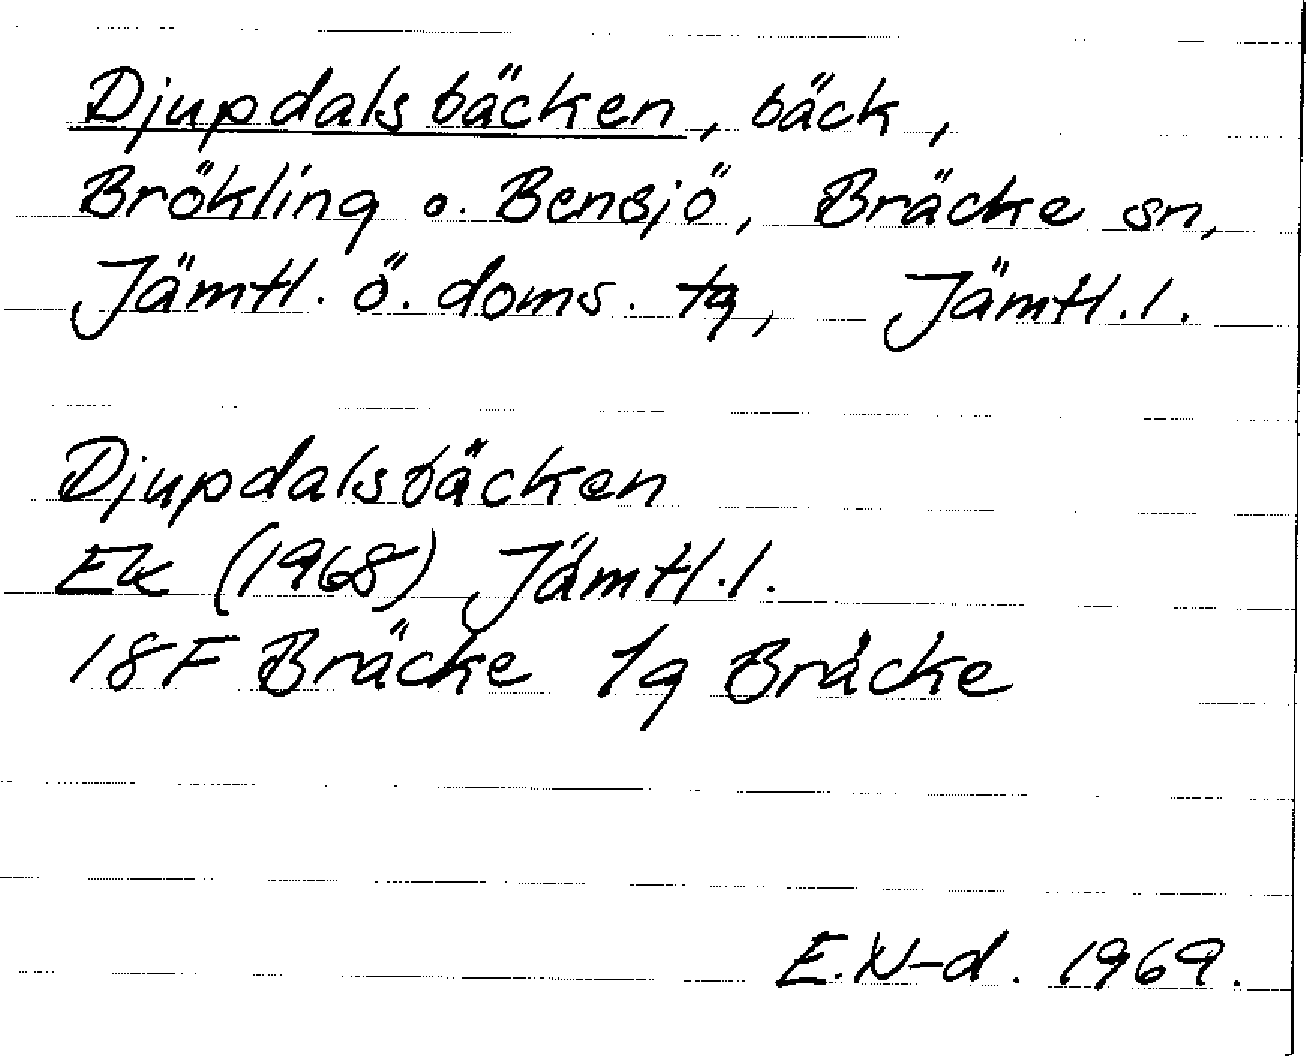 Djupdalsbäcken, bäck,
Brökling o. Bensjö, Bräcke sn,
Jämtl. ö. doms. tg, Jämtl. l.
Djupdalsbäcken
Ek (1968) Jämtl. l.
18F Bräcke 1g Bräcke
E.N-d. 1969.